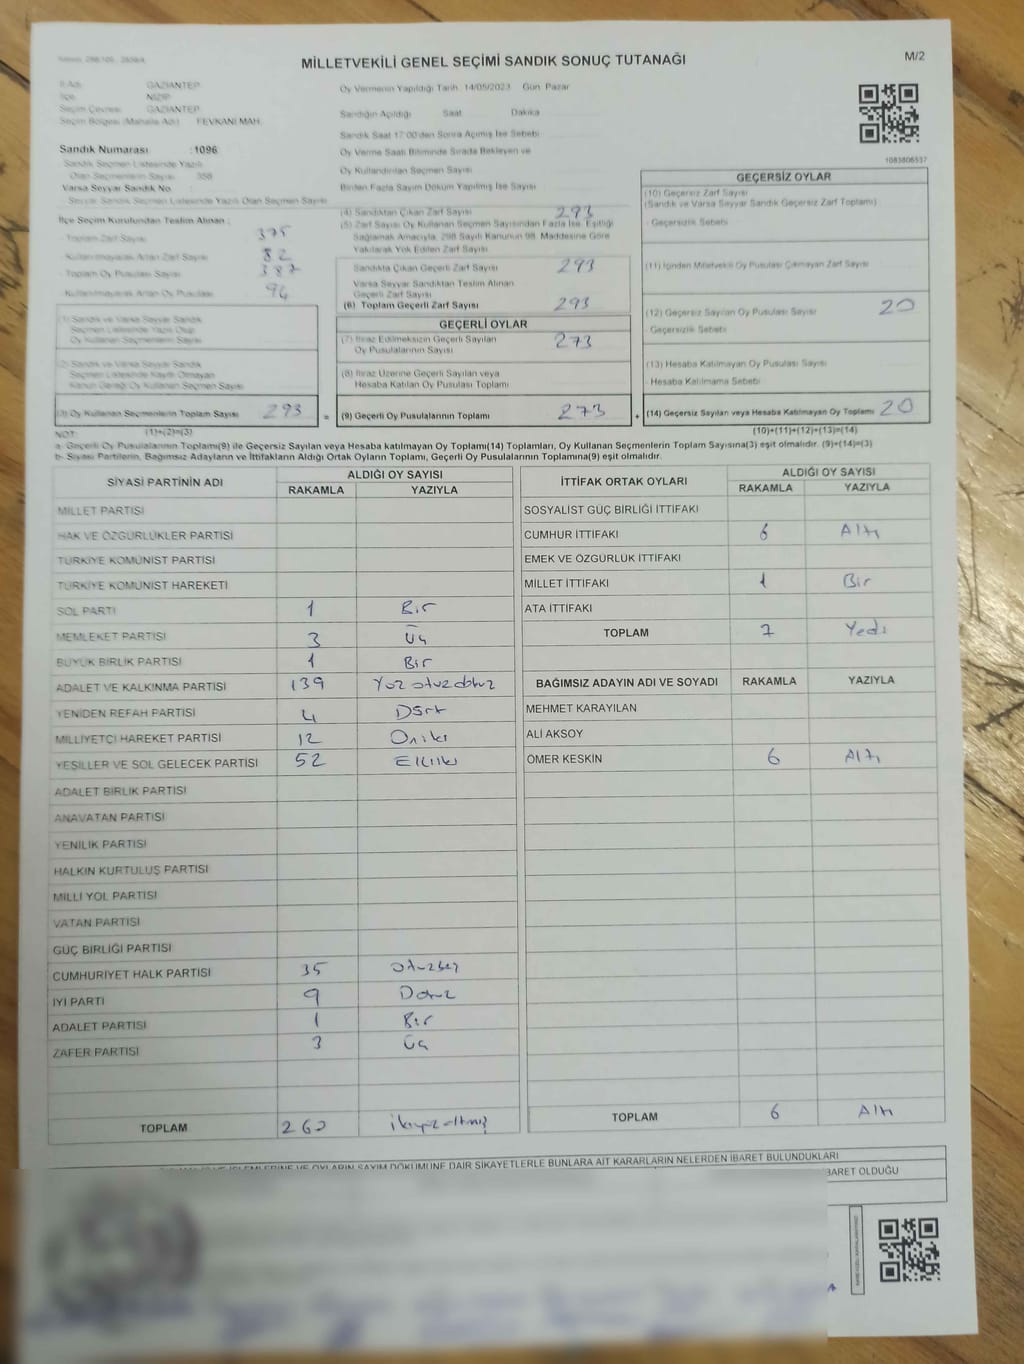 MİLLETVEKİLİ GENEL SEÇİMİ SANDIK SONUÇ TUTANAĞI
M/2
İl Adı GAZİANTEP
İlçe NİZİP
Seçim Çevresi GAZİANTEP
Seçim Bölgesi (Mahalle Adı) FEVKANİ MAH.
Sandık Numarası :1096
Sandık Seçmen Listesinde Yazılı
Olan Seçmen Sayısı 358
Varsa Seyyar Sandık No :
Seyyar Sandık Seçmen Listesinde Yazılı Olan Seçmen Sayısı
Oy Vermenin Yapıldığı Tarih 14/05/2023 Gün: Pazar
Sandığın Açıldığı Saat Dakika
Sandık Saat 17:00'den Sonra Açılmış İse Sebebi
Oy Verme Saati Bitiminde Sırada Bekleyen ve
Oy Kullandırılan Seçmen Sayısı
Birden Fazla Sayım Döküm Yapılmış İse Sayısı
1083806537
İlçe Seçim Kurulundan Teslim Alınan :
Toplam Zarf Sayısı 375
Kullanılmayarak Artan Zarf Sayısı 82
Toplam Oy Pusulası Sayısı 387
Kullanılmayarak Artan Oy Pusulası 94
(1) Sandık ve Varsa Seyyar Sandık
Seçmen Listesinde Yazılı Olup
Oy Kullanan Seçmenlerin Sayısı
(2) Sandık ve Varsa Seyyar Sandık
Seçmen Listesinde Kayıtlı Olmayan
Kanun Gereği Oy Kullanan Seçmen Sayısı
(3) Oy Kullanan Seçmenlerin Toplam Sayısı 293
(1)+(2)=(3)
(4) Sandıktan Çıkan Zarf Sayısı 293
(5) Zarf Sayısı Oy Kullanan Seçmen Sayısından Fazla İse, Eşitliği
Sağlamak Amacıyla, 298 Sayılı Kanunun 98. Maddesine Göre
Yakılarak Yok Edilen Zarf Sayısı
Sandıkta Çıkan Geçerli Zarf Sayısı 293
Varsa Seyyar Sandıktan Teslim Alınan
Geçerli Zarf Sayısı
(6) Toplam Geçerli Zarf Sayısı 293
GEÇERLİ OYLAR
(7) İtiraz Edilmeksizin Geçerli Sayılan
Oy Pusulalarının Sayısı 273
(8) İtiraz Üzerine Geçerli Sayılan veya
Hesaba Katılan Oy Pusulası Toplamı
= (9) Geçerli Oy Pusulalarının Toplamı 273
GEÇERSİZ OYLAR
(10) Geçersiz Zarf Sayısı
(Sandık ve Varsa Seyyar Sandık Geçersiz Zarf Toplamı)
Geçersizlik Sebebi
(11) İçinden Milletvekili Oy Pusulası Çıkmayan Zarf Sayısı
(12) Geçersiz Sayılan Oy Pusulası Sayısı 20
Geçersizlik Sebebi
(13) Hesaba Katılmayan Oy Pusulası Sayısı
Hesaba Katılmama Sebebi
+ (14) Geçersiz Sayılan veya Hesaba Katılmayan Oy Toplamı 20
(10)+(11)+(12)+(13)=(14)
NOT:
a- Geçerli Oy Pusulalarının Toplamı(9) ile Geçersiz Sayılan veya Hesaba katılmayan Oy Toplamı(14) Toplamları, Oy Kullanan Seçmenlerin Toplam Sayısına(3) eşit olmalıdır. (9)+(14)=(3)
b- Siyasi Partilerin, Bağımsız Adayların ve İttifakların Aldığı Ortak Oyların Toplamı, Geçerli Oy Pusulalarının Toplamına(9) eşit olmalıdır.
SİYASİ PARTİNİN ADI ALDIĞI OY SAYISI
RAKAMLA YAZIYLA
MİLLET PARTİSİ
HAK VE ÖZGÜRLÜKLER PARTİSİ
TÜRKİYE KOMÜNİST PARTİSİ
TÜRKİYE KOMÜNİST HAREKETİ
SOL PARTİ 1 Bir
MEMLEKET PARTİSİ 3 Üç
BÜYÜK BİRLİK PARTİSİ 1 Bir
ADALET VE KALKINMA PARTİSİ 139 Yüz otuz dokuz
YENİDEN REFAH PARTİSİ 4 Dört
MİLLİYETÇİ HAREKET PARTİSİ 12 Oniki
YEŞİLLER VE SOL GELECEK PARTİSİ 52 Elliiki
ADALET BİRLİK PARTİSİ
ANAVATAN PARTİSİ
YENİLİK PARTİSİ
HALKIN KURTULUŞ PARTİSİ
MİLLİ YOL PARTİSİ
VATAN PARTİSİ
GÜÇ BİRLİĞİ PARTİSİ
CUMHURİYET HALK PARTİSİ 35 otuzbeş
İYİ PARTİ 9 Dokuz
ADALET PARTİSİ 1 Bir
ZAFER PARTİSİ 3 Üç
TOPLAM 260 ikiyüzaltmış
İTTİFAK ORTAK OYLARI ALDIĞI OY SAYISI
RAKAMLA YAZIYLA
SOSYALİST GÜÇ BİRLİĞİ İTTİFAKI
CUMHUR İTTİFAKI 6 Altı
EMEK VE ÖZGÜRLÜK İTTİFAKI
MİLLET İTTİFAKI 1 Bir
ATA İTTİFAKI
TOPLAM 7 Yedi
BAĞIMSIZ ADAYIN ADI VE SOYADI RAKAMLA YAZIYLA
MEHMET KARAYILAN
ALİ AKSOY
ÖMER KESKİN 6 Altı
TOPLAM 6 Altı
OYLARIN SAYIM DÖKÜMÜNE DAİR ŞİKAYETLERLE BUNLARA AİT KARARLARIN NELERDEN İBARET BULUNDUKLARI
BARET OLDUĞU